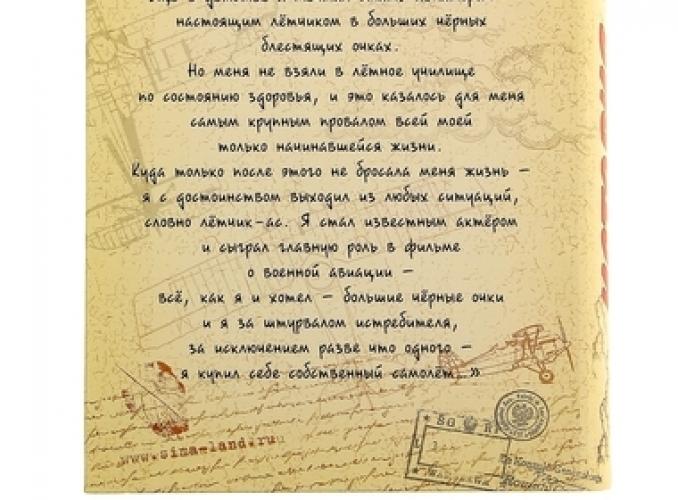 настоящим лётчиком в больших чёрных
блестящих очках.
Но меня не взяли в лётное училище
по состоянию здоровья, и это казалось для меня
самым крупным провалом всей моей
только начинавшейся жизни.
Куда только после этого не бросала меня жизнь –
я с достоинством выходил из любых ситуаций,
словно лётчик-ас. Я стал известным актёром
и сыграл главную роль в фильме
о военной авиации –
всё, как я и хотел – большие чёрные очки
и я за штурвалом истребителя,
за исключением разве что одного –
я купил себе собственный самолёт…»
www.sima-land.ru
SG
R